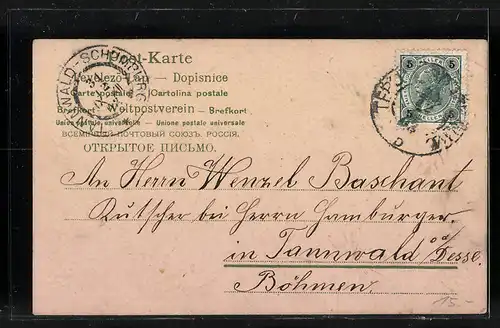 Post-Karte
Levelező-Lap — Dopisnice
Carte postale — Cartolina postale
Brefkort — Weltpostverein — Brefkort
Union postale universelle — Unione postale universale
ВСЕМІРНЫЙ ПОЧТОВЫЙ СОЮЗЪ. РОССІЯ.
ОТКРЫТОЕ ПИСЬМО.
5 5
TANNWALD-SCHUMBURG
An Herrn Wenzel Baschant
Kutscher bei Herrn Hamburger
in Tannwald a/d Desse.
Böhmen
15.-